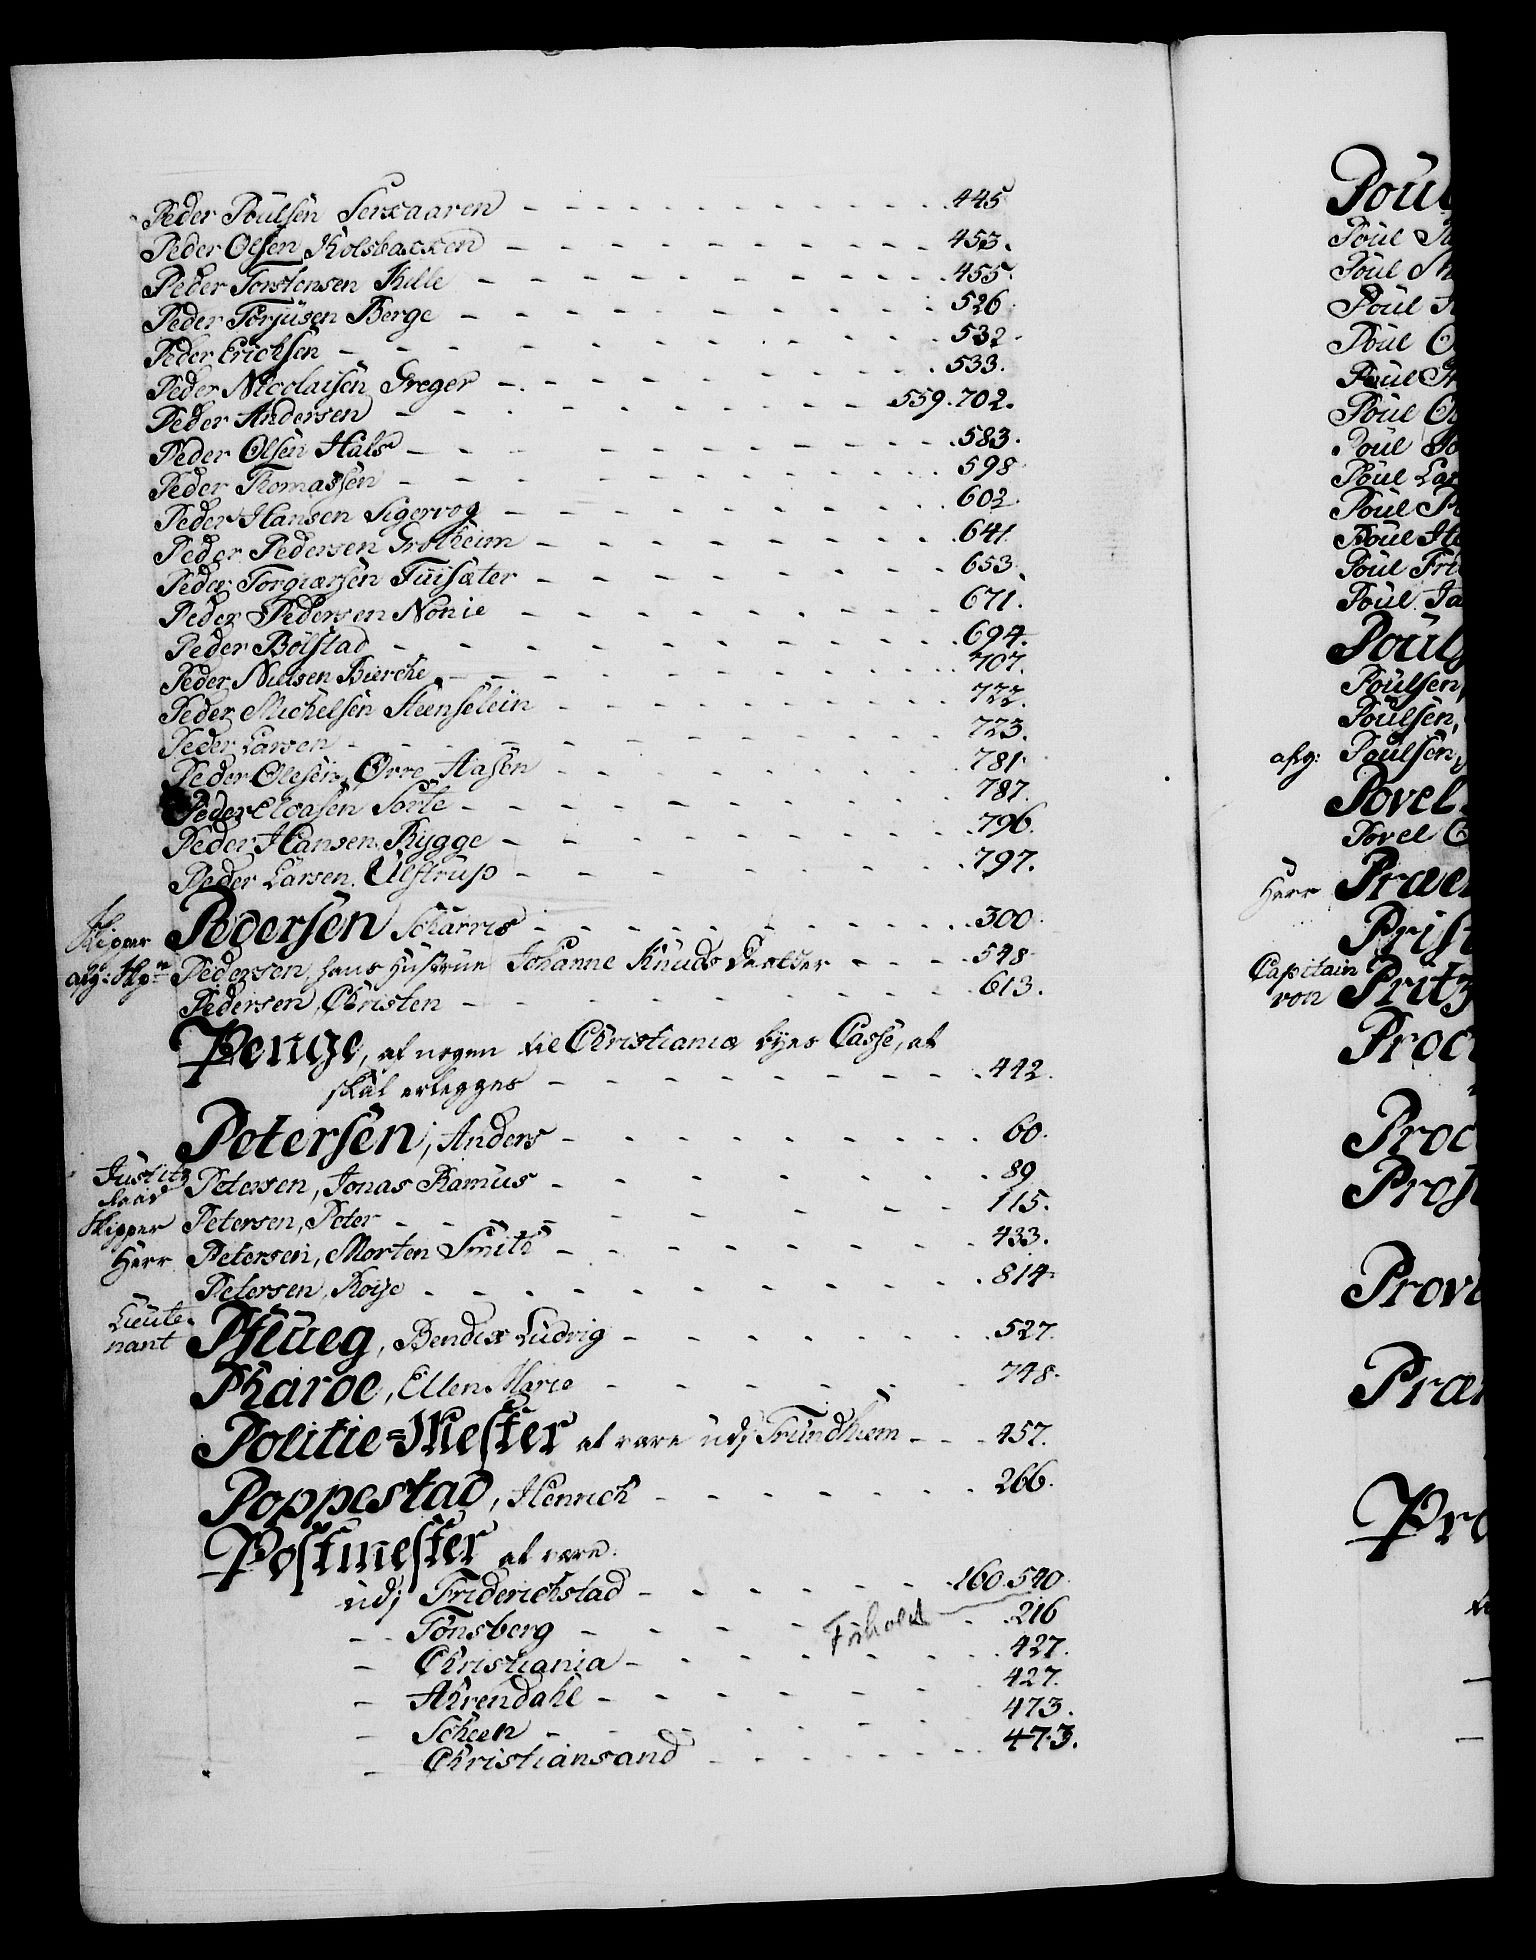 Peder Poulsen Sexaaren - - - 445
Peder Olsen Kolsbacken - - - 453.
Peder Torstensen Kille - - - 455.
Peder Torjusen Berge - - - 526.
Peder Erichsen - - - 532.
Peder Nicolaisen Greger - - - 533.
Peder Andersen - - - 559.702.
Peder Olsen Hals - - - 583.
Peder Thomassen - - - 598.
Peder Hansen Sigervog - - - 602.
Peder Pedersen Grotheim - - - 641.
Peder Torgiærsen Tuisæter - - - 653.
Peder Pedersen Nonie - - - 671.
Peder Bolstad - - - 694.
Peder Nielsen Bierche - - - 707.
Peder Michelsen Steenselein - - - 722.
Peder Larsen - - - 723.
Peder Olesen Øvre Aasen - - - 781.
Peder Eloasen Sorte - - - 787.
Peder Hansen Rygge - - - 796.
Peder Larsen Ulstrup - - - 797.
Skipper Pedersen - - - 300.
afg: Skp. Pedersen, hans Hustrue Johanne Knuds Daatter - - - 548.
Pedersen, Christen - - - 613.
Penge, af nogen til Christiania Byes Casse, at
skal erlegges - - - 442.
Petersen, Anders - - - 60.
Justitz
Raad Petersen, Jonas Ramus - - - 89
Skipper Petersen, Peter - - - 115.
Herr Petersen, Morten Smith - - - 433.
Petersen, Roije - - - 814.
Lieute-
nant Pflueg, Bendix Ludvig - - - 527.
Pharoe, Ellen Marie - - - 748.
Politie=Mester at være udj Trundhiem - - - 457.
Poppestad, Henrich - - - 266.
Postmester at være
udj Friderichstad - - - 160.540.
- - Tønsberg - - - 216
Forholdt
- Christiania - - - 427.
- Ahrendahl - - - 427.
- Scheen - - - 473.
- Christiansand - - - 473.
Poul
Poul
Poul
Poul
Poul
Poul
Poul
Poul
Poul
Poul
Poul
Poul
Poul
Pouls
Poulsen,
Poulsen,
afg: Poulsen,
Povel
Povel
Herr Præ
Prist
Capitain
von Pritz
Proc
Proc
Prof
Provi
Præ
Pro